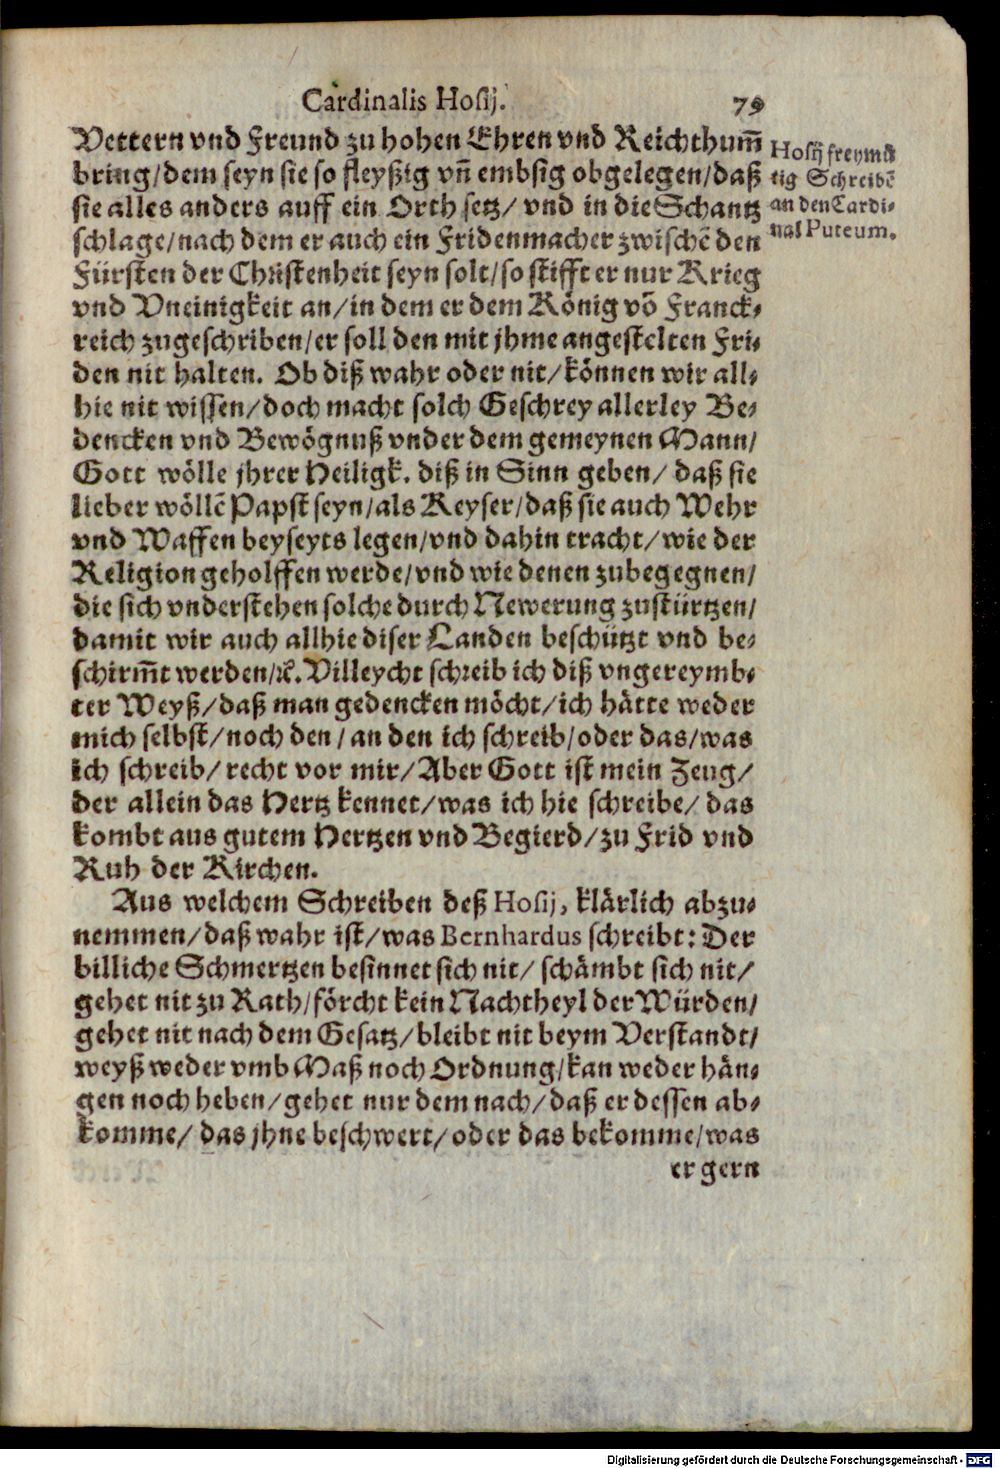 Cardinalis Hosij. 79
Vettern vnd Freund zu hohen Ehren vnd Reichthum̃
bring/dem seyn sie so fleyßig vñ embsig obgelegen/daß
sie alles anders auff ein Orth setz/ vnd in die Schantz
schlage/nach dem er auch ein Fridenmacher zwischẽ den
Fürsten der Christenheit seyn solt/so stifft er nur Krieg
vnd Vneinigkeit an/in dem er dem König võ Franck-
reich zugeschriben/er soll den mit jhme angestelten Fri-
den nit halten. Ob diß wahr oder nit/können wir all-
hie nit wissen/doch macht solch Geschrey allerley Be-
dencken vnd Bewögnuß vnder dem gemeynen Mann/
Gott wölle jhrer Heiligk. diß in Sinn geben/ daß sie
lieber wöllẽ Papst seyn/als Keyser/daß sie auch Wehr
vnd Waffen beyseyts legen/vnd dahin tracht/wie der
Religion geholffen werde/vnd wie denen zubegegnen/
die sich vnderstehen solche durch Newerung zustürtzen/
damit wir auch allhie diser Landen beschützt vnd be-
schirm̃t werden/ꝛc. Villeycht schreib ich diß vngereymb-
ter Weyß/daß man gedencken möcht/ich hätte weder
mich selbst/noch den/an den ich schreib/oder das/was
ich schreib/ recht vor mir/Aber Gott ist mein Zeug/
der allein das Hertz kennet/was ich hie schreibe/ das
kombt aus gutem Hertzen vnd Begierd/zu Frid vnd
Ruh der Kirchen.
Aus welchem Schreiben deß Hosij, klärlich abzu-
nemmen/daß wahr ist/was Bernhardus schreibt: Der
billiche Schmertzen besinnet sich nit/ schämbt sich nit/
gehet nit zu Rath/förcht kein Nachtheyl der Würden/
gehet nit nach dem Gesatz/bleibt nit beym Verstandt/
weyß weder vmb Maß noch Ordnung/kan weder hän-
gen noch heben/gehet nur dem nach/daß er dessen ab-
komme/ das jhne beschwert/oder das bekomme/was
er gern
Hosij freymü
tig Schreibẽ
an den Cardi-
nal Puteum.
Digitalisierung gefördert durch die Deutsche Forschungsgemeinschaft - DFG